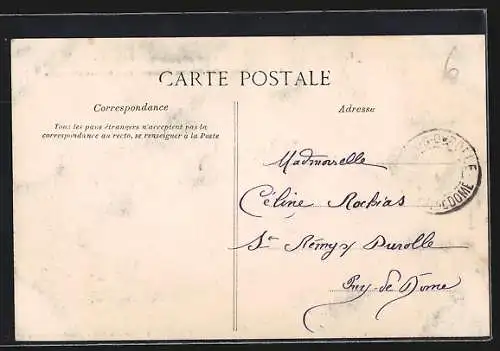 6
CARTE POSTALE
Correspondance
Tous les pays étrangers n'acceptent pas la
correspondance au recto, se renseigner à la Poste
Adresse
Mademoiselle
Céline Rochias
St Rémy s/ Durolle
Puy-de Dome
DUROLLE
DE DOME